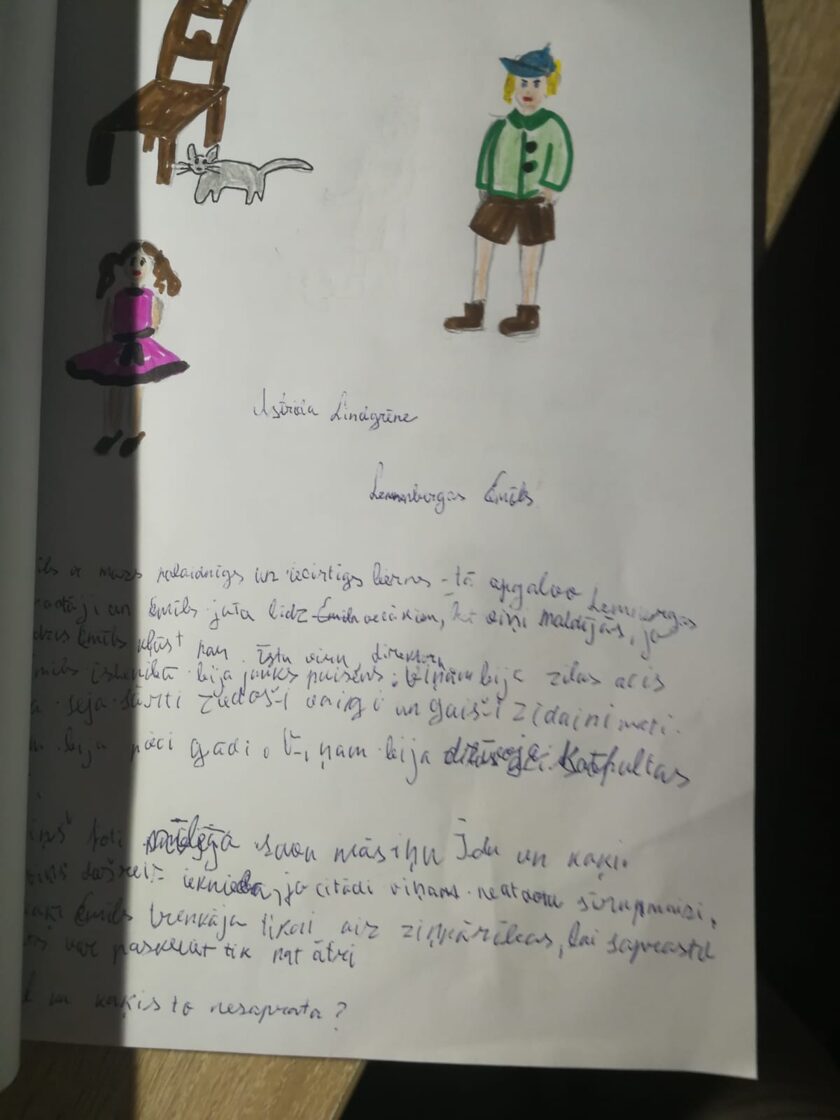 Astrīda Lindgrēne
Lennebergas Emīls
ir mazs palaidnīgs un iecirtīgs bērns - tā apgalvo Lennebergas
un Emīls jāta līdz Emīla vecākiem, ka viņi maldījās, jo
Emīls kļūst par īstu vīru direktoru
īstenībā bija jauks puisēns. Viņam bija zilas acis
seja sārti ziedoši vaigi un gaiši zīdaini mati.
bija pieci gadi. Viņam bija Katpultas
ļoti mīlēja savu māsiņu Īdu un kaķi.
dažreiz ieknieba, jo citādi viņam neatdeva sīrupmaizi.
Emīls trenkāja tikai aiz ziņkārības, lai saprastu
var paskriet tik pat ātri
un kaķis to nesaprata?